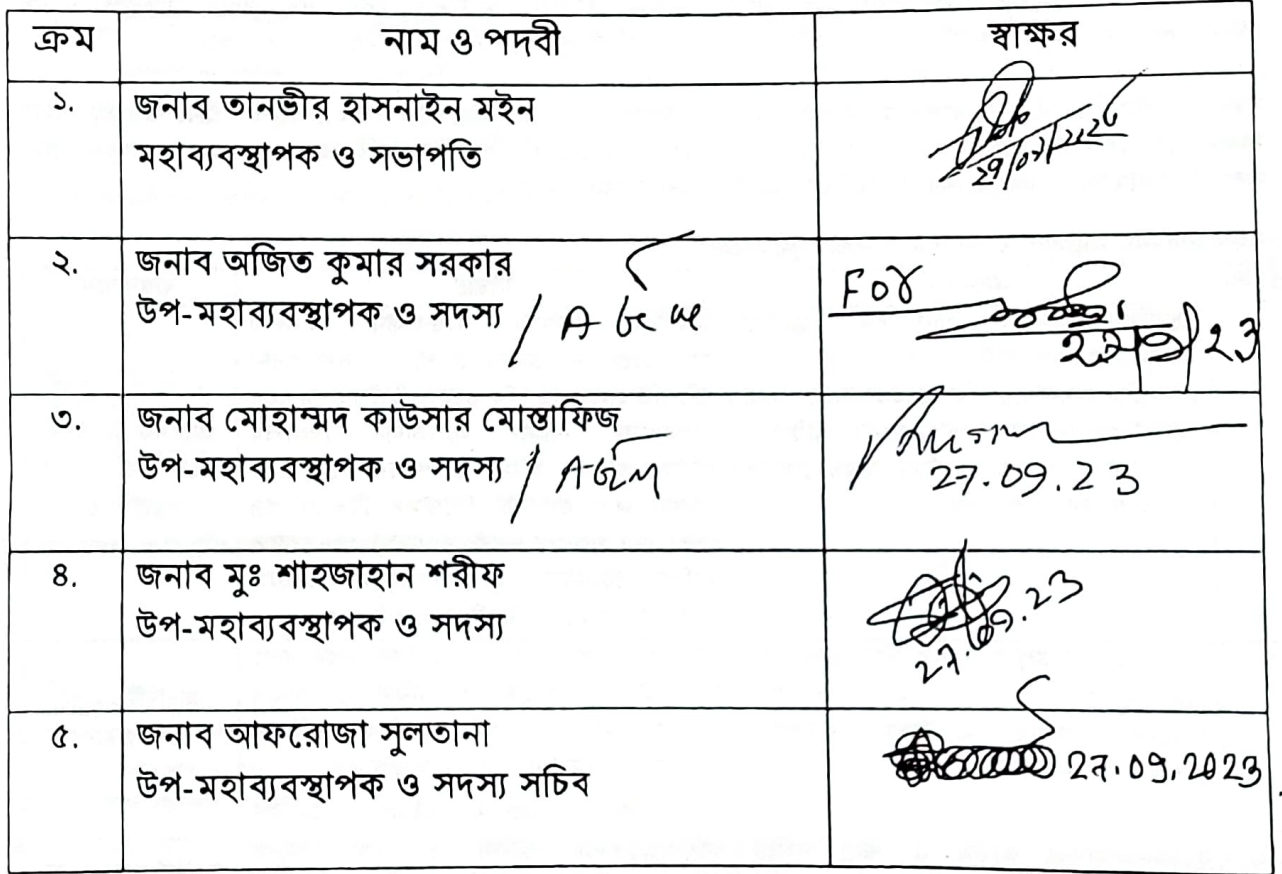 ক্রম নাম ও পদবী স্বাক্ষর
১. জনাব তানভীর হাসনাইন মইন
মহাব্যবস্থাপক ও সভাপতি
২. জনাব অজিত কুমার সরকার
উপ-মহাব্যবস্থাপক ও সদস্য / AGM For
27/9/23
৩. জনাব মোহাম্মদ কাউসার মোস্তাফিজ
উপ-মহাব্যবস্থাপক ও সদস্য / AGM 27.09.23
৪. জনাব মুঃ শাহজাহান শরীফ
উপ-মহাব্যবস্থাপক ও সদস্য 27.09.23
৫. জনাব আফরোজা সুলতানা
উপ-মহাব্যবস্থাপক ও সদস্য সচিব 27.09.2023